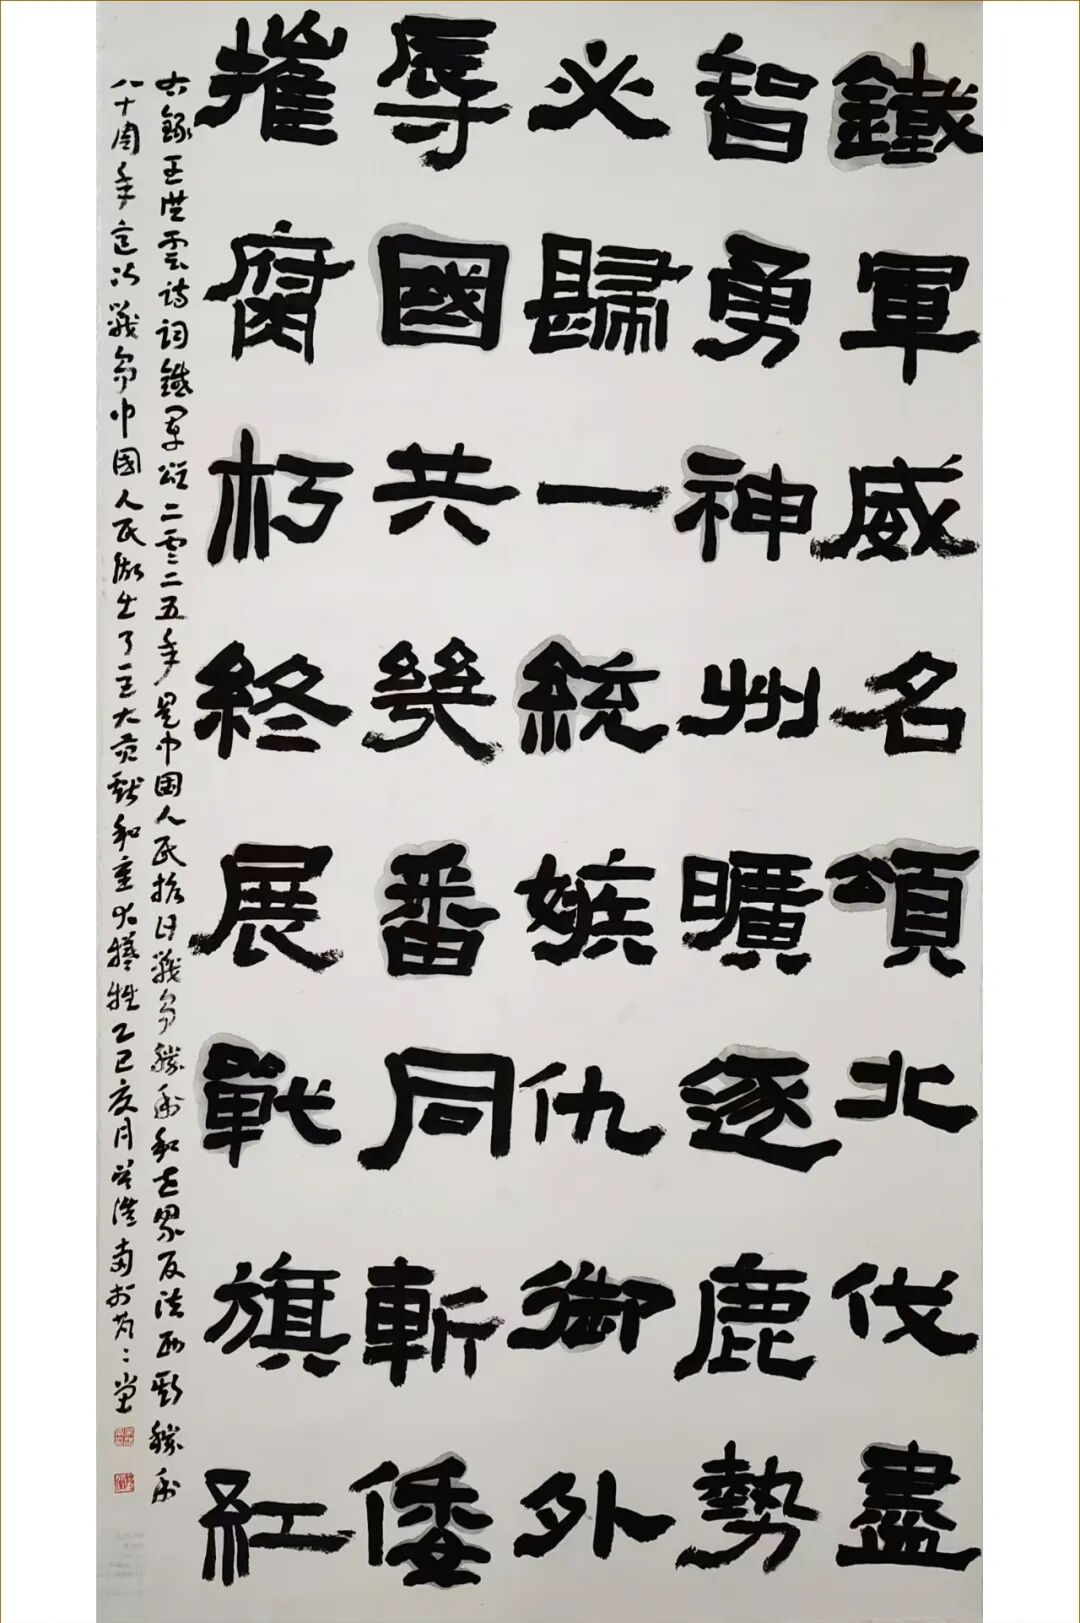 鐵軍威名頌北伐盡
智勇神州曠逐鹿勢
必歸一統嫉仇御外
辱國共幾番同斬倭
摧腐朽終展戰旗紅
右錄王洪雲詩詞鐵軍頌二零二五年是中国人民抗日戰爭勝利和世界反法西斯勝利
八十周年這次戰爭中國人民做出了巨大贡獻和重大犧牲乙巳夏月 浩南於 堂